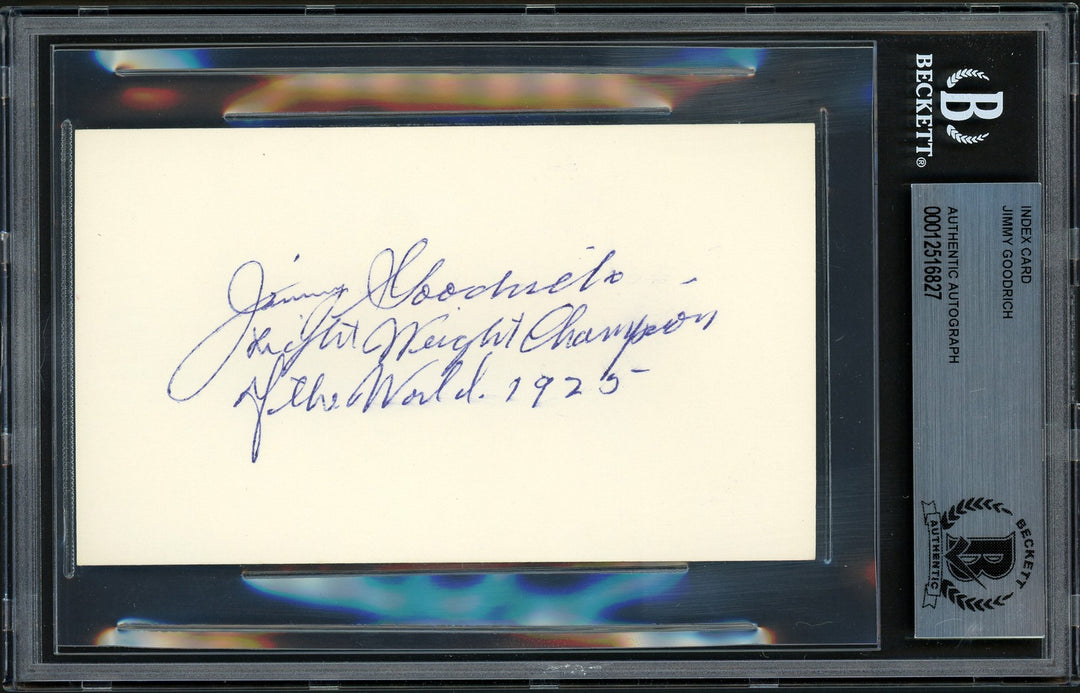 Jimmy Goodrich
Light Weight Champion
of the World. 1925
BECKETT®
B
INDEX CARD
JIMMY GOODRICH
AUTHENTIC AUTOGRAPH
00012516827
BECKETT
B
AUTHENTIC